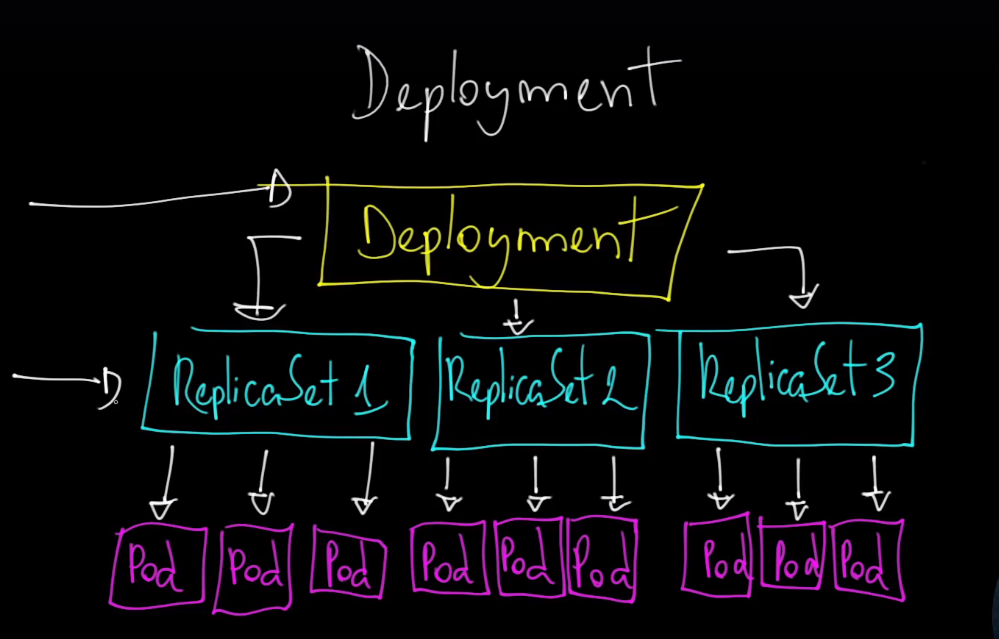 Deployment
Deployment
ReplicaSet 1 ReplicaSet 2 ReplicaSet 3
Pod Pod Pod Pod Pod Pod Pod Pod Pod